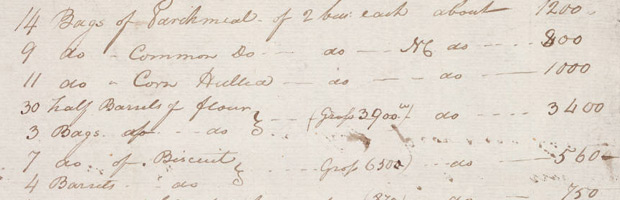 14 Bags of Parchmeal - of 2 bus: each about 1200
9 do - Common Do - - do - - No do - - - 800
11 do - Corn Hulled - do - - do - - 1000
30 half Barrels of flour - - (Gross 3900) do - - 3400
3 Bags do - - do
7 do of Biscuit - - - Gross 6300) - do - - 560
4 Barrels - do
750